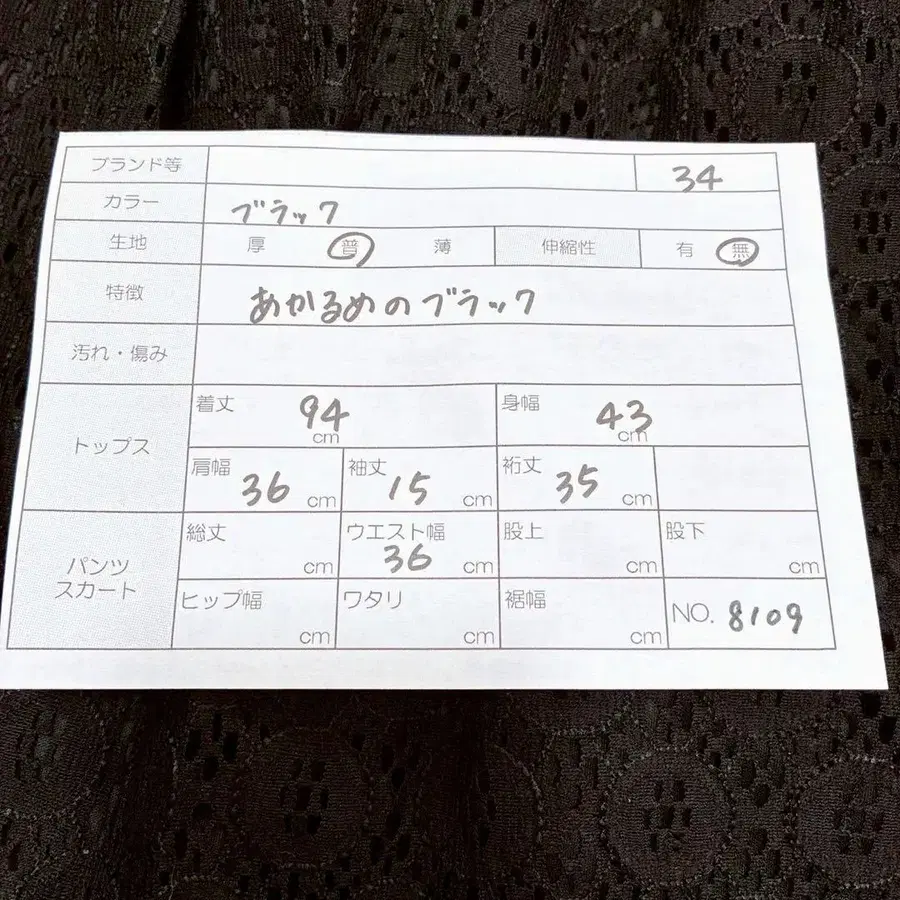 ブランド等 34
カラー ブラック
生地 厚 普 薄 伸縮性 有 無
特徴 あかるめのブラック
汚れ・傷み
トップス
着丈 94 cm 身幅 43 cm
肩幅 36 cm 袖丈 15 cm 裄丈 35 cm
パンツ
スカート
総丈 cm ウエスト幅 36 cm 股上 cm 股下 cm
ヒップ幅 cm ワタリ cm 裾幅 cm NO. 8109